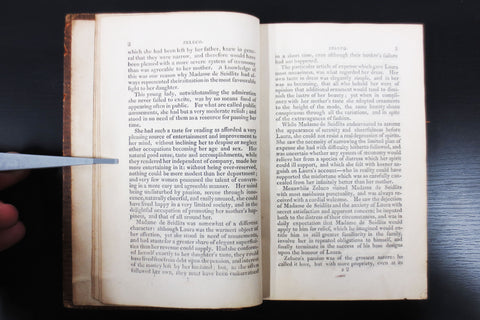 2
ZELUCO.
which she had been left by her father, knew in gene-
ral that they were narrow, and therefore would have
been pleased with a more severe system of economy
than was agreeable to her mother. A knowledge of
this was one reason why Madame de Seidlits had al-
ways represented their situation in the most favourable
light to her daughter.
This young lady, notwithstanding the admiration
she never failed to excite, was by no means fond of
appearing often in public. For what are called public
amusements, she had but a very moderate relish; and
stood in no need of them as a resource for passing her
time.
She had such a taste for reading as afforded a very
pleasing source of entertainment and improvement to
her mind, without inclining her to despise or neglect
other occupations becoming her age and sex. Her
natural good sense, taste and accomplishments, while
they rendered her independent of company, made her
more entertaining in it: without being over-reserved,
nothing could be more modest than her deportment;
and very few women possessed the talent of convers-
ing in a more easy and agreeable manner. Her mind
being undisturbed by passion, serene through inno-
cence, naturally cheerful, and easily amused, she could
have lived happy in a very limited society, and in the
delightful occupation of promoting her mother's hap-
piness, and that of all around her.
Madame de Seidlits was somewhat of a different
character: although Laura was the warmest object of
her affection, yet she stood in need of amusements,
and had a taste for a greater share of elegant superflui-
ties than her revenue could supply. Had she conform-
ed herself exactly to her daughter's taste, they could
have lived free from debt upon the pension, and interest
of the money left by her husband; but, as she often
followed her own, they must have been embarrassed
ZELUCO.
3
in a short time, even although their banker's failure
had not happened.
The particular article of expence which gave Laura
most uneasiness, was what regarded her dress. Her
own taste in dress was elegantly simple, and in her
was so becoming, that all who beheld her were of
opinion that additional ornament would tend to dimi-
nish the lustre of her beauty; yet when in compli-
ance with her mother's taste she adopted ornaments
to the height of the mode, the same beauty shone
conspicuous through all the variations, and in spite
of the extravagance of fashion.
While Madame de Seidlits endeavoured to assume
the appearance of serenity and cheerfulness before
Laura, she could not resist a real depression of spirits.
She saw the necessity of narrowing the limited plan of
expense she had with difficulty hitherto followed, and
was uncertain whether any system of economy would
relieve her from a species of distress which her spirit
could ill support, and which she felt with keener an-
guish on Laura's account—who in reality could have
supported the misfortune which was so carefully con-
cealed from her infinitely better than her mother.
Meanwhile Zeluco visited Madame de Seidlits
with most assiduous punctuality, and was always re-
ceived with a cordial welcome. He saw the dejection
of Madame de Seidlits and the anxiety of Laura with
secret satisfaction and apparent concern; he imputed
both to the distress of their circumstances, and was in
daily expectation that Madame de Seidlits would
apply to him for relief, which he imagined would en-
title him to still greater familiarity in the family,
involve her in repeated obligations to himself, and
finally terminate in the success of his base designs
upon the honour of Laura.
Zeluco's passion was of the grossest nature: he
called it love, but with more propriety, even at its
A 2